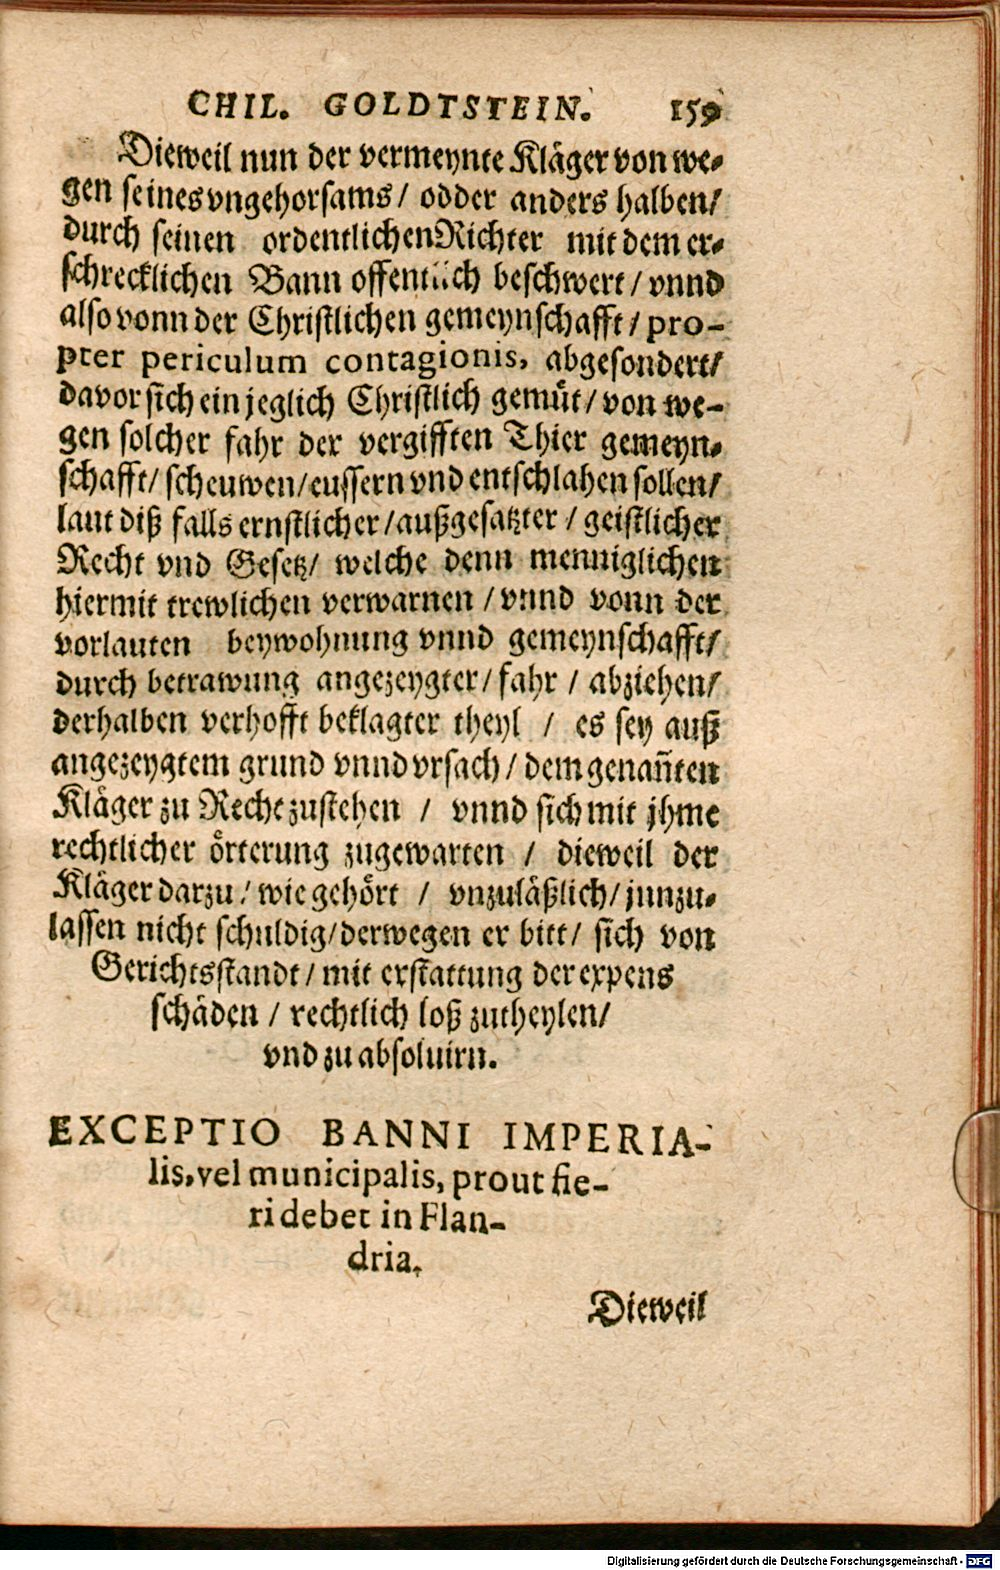 CHIL. GOLDTSTEIN. 159
Dieweil nun der vermeynte Kläger von we⸗
gen seines vngehorsams/ odder anders halben/
durch seinen ordentlichen Richter mit dem er⸗
schrecklichen Bann offentlich beschwert/ vnnd
also vonn der Christlichen gemeynschafft/ pro-
pter periculum contagionis, abgesondert/
davor sich ein jeglich Christlich gemüt/ von we-
gen solcher fahr der vergifften Thier gemeyn⸗
schafft/ scheuwen/ eussern vnd entschlahen sollen/
laut diß falls ernstlicher/ außgesatzter/ geistlicher
Recht vnd Gesetz/ welche denn menniglichen
hiermit trewlichen verwarnen/ vnnd vonn der
vorlauten beywohnung vnnd gemeynschafft/
durch betrawung angezeygter/ fahr/ abziehen/
derhalben verhofft beklagter theyl/ es sey auß
angezeygtem grund vnnd vrsach/ dem genañten
Kläger zu Recht zustehen/ vnnd sich mit jhme
rechtlicher örterung zugewarten/ dieweil der
Kläger darzu/ wie gehört/ vnzuläßlich/ jnnzu⸗
lassen nicht schuldig/ derwegen er bitt/ sich von
Gerichtsstandt/ mit erstattung der expens
schäden/ rechtlich loß zutheylen/
vnd zu absoluirn.
EXCEPTIO BANNI IMPERIA-
lis, vel municipalis, prout fie-
ri debet in Flan-
dria.
Dieweil
Digitalisierung gefördert durch die Deutsche Forschungsgemeinschaft - DFG